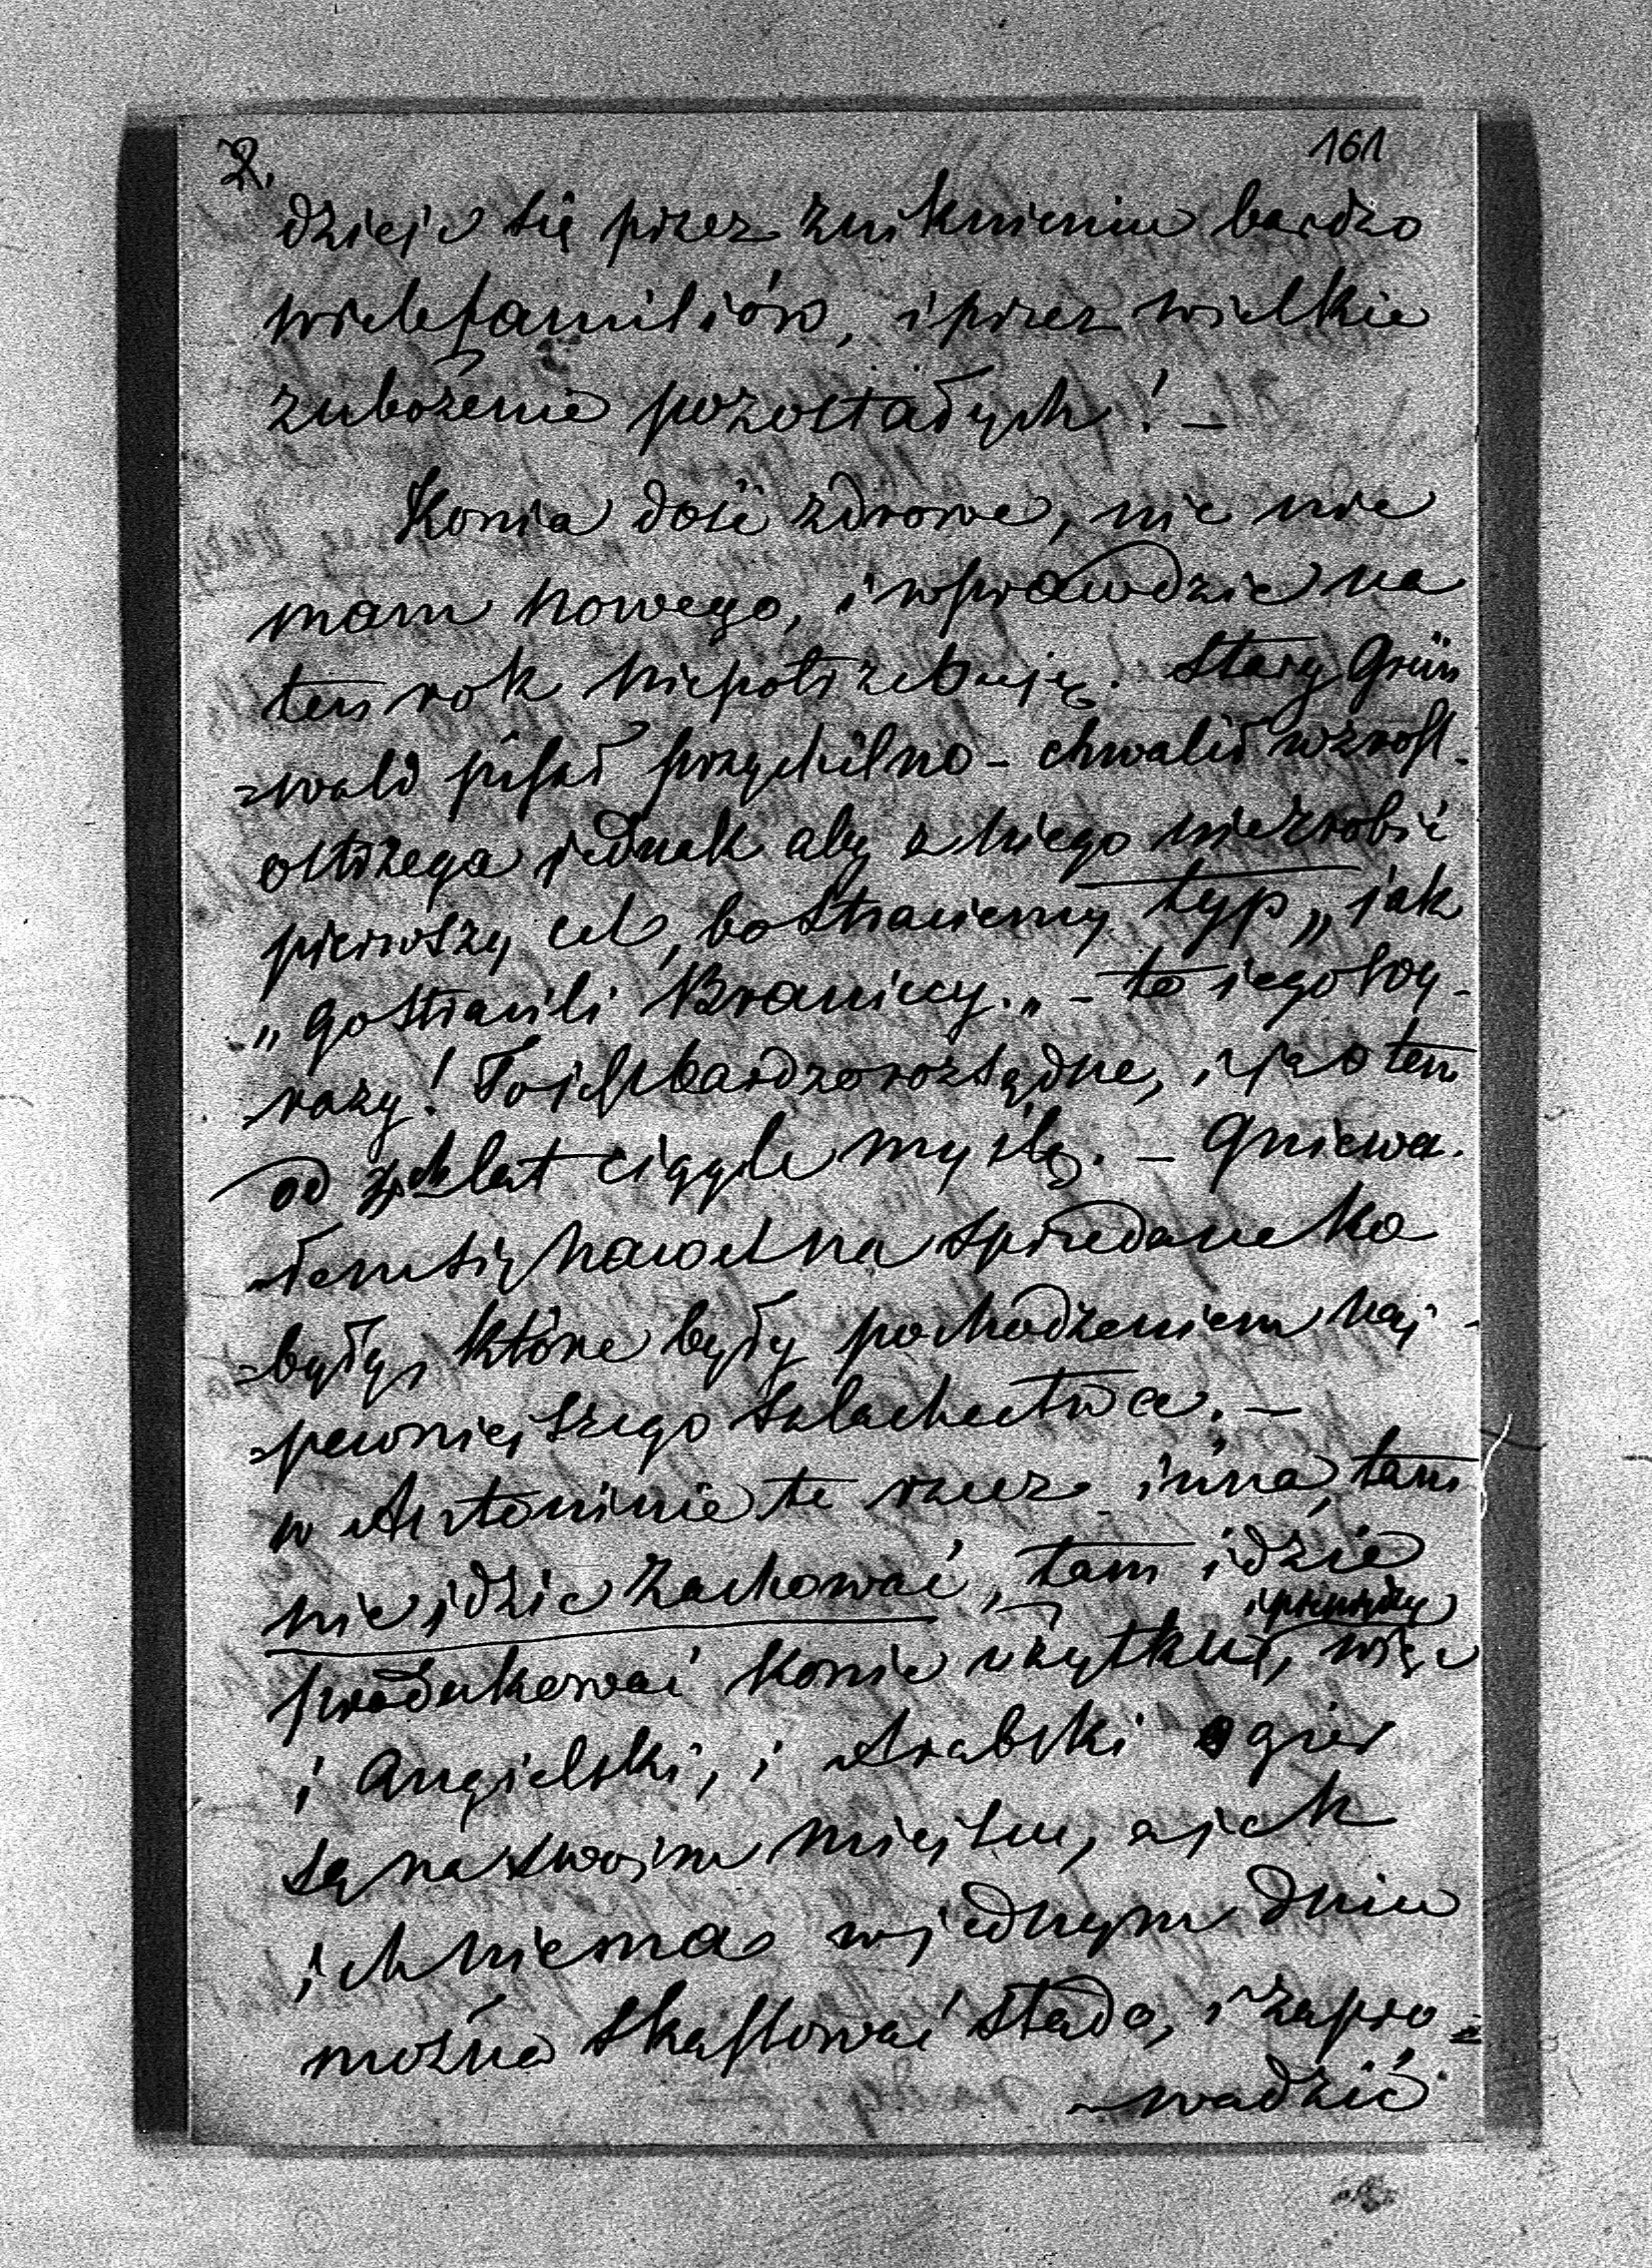 2.
161
dzieje się przez zniknienie bardzo
wiele familiów, i przez wielkie
zubożenie pozostałych! –
Konie dość zdrowe, nic nie
mam nowego, i wprawdzie na
ten rok niepotrzebuję. Stary Grün
=wald pisał przychilno – chwalił wzrost.
ostrzega jednak aby z niego niezrobić
pierwszy cel, bo stracimy typ „jak
„go stracili Braniccy.„ – to jego wy-
razy! To jest bardzo rozsądne, i ja o tem
od lat ciągle myślę. – Gniewa.
=łem się nawet na sprzedane ko
=były, które były pochodzeniem naj-
=pewniejszego szlachectwa. –
w Antoninie to rzecz inna, tam
nie idzie zachować, tam idzie
i pieniędzy
produkować konie użytku, więc
i Angielski, i Arabski ogier
są na swojim miejscu, a jak
ich niema w jednym dniu
można skasować stado, i zapro=
=wadzić